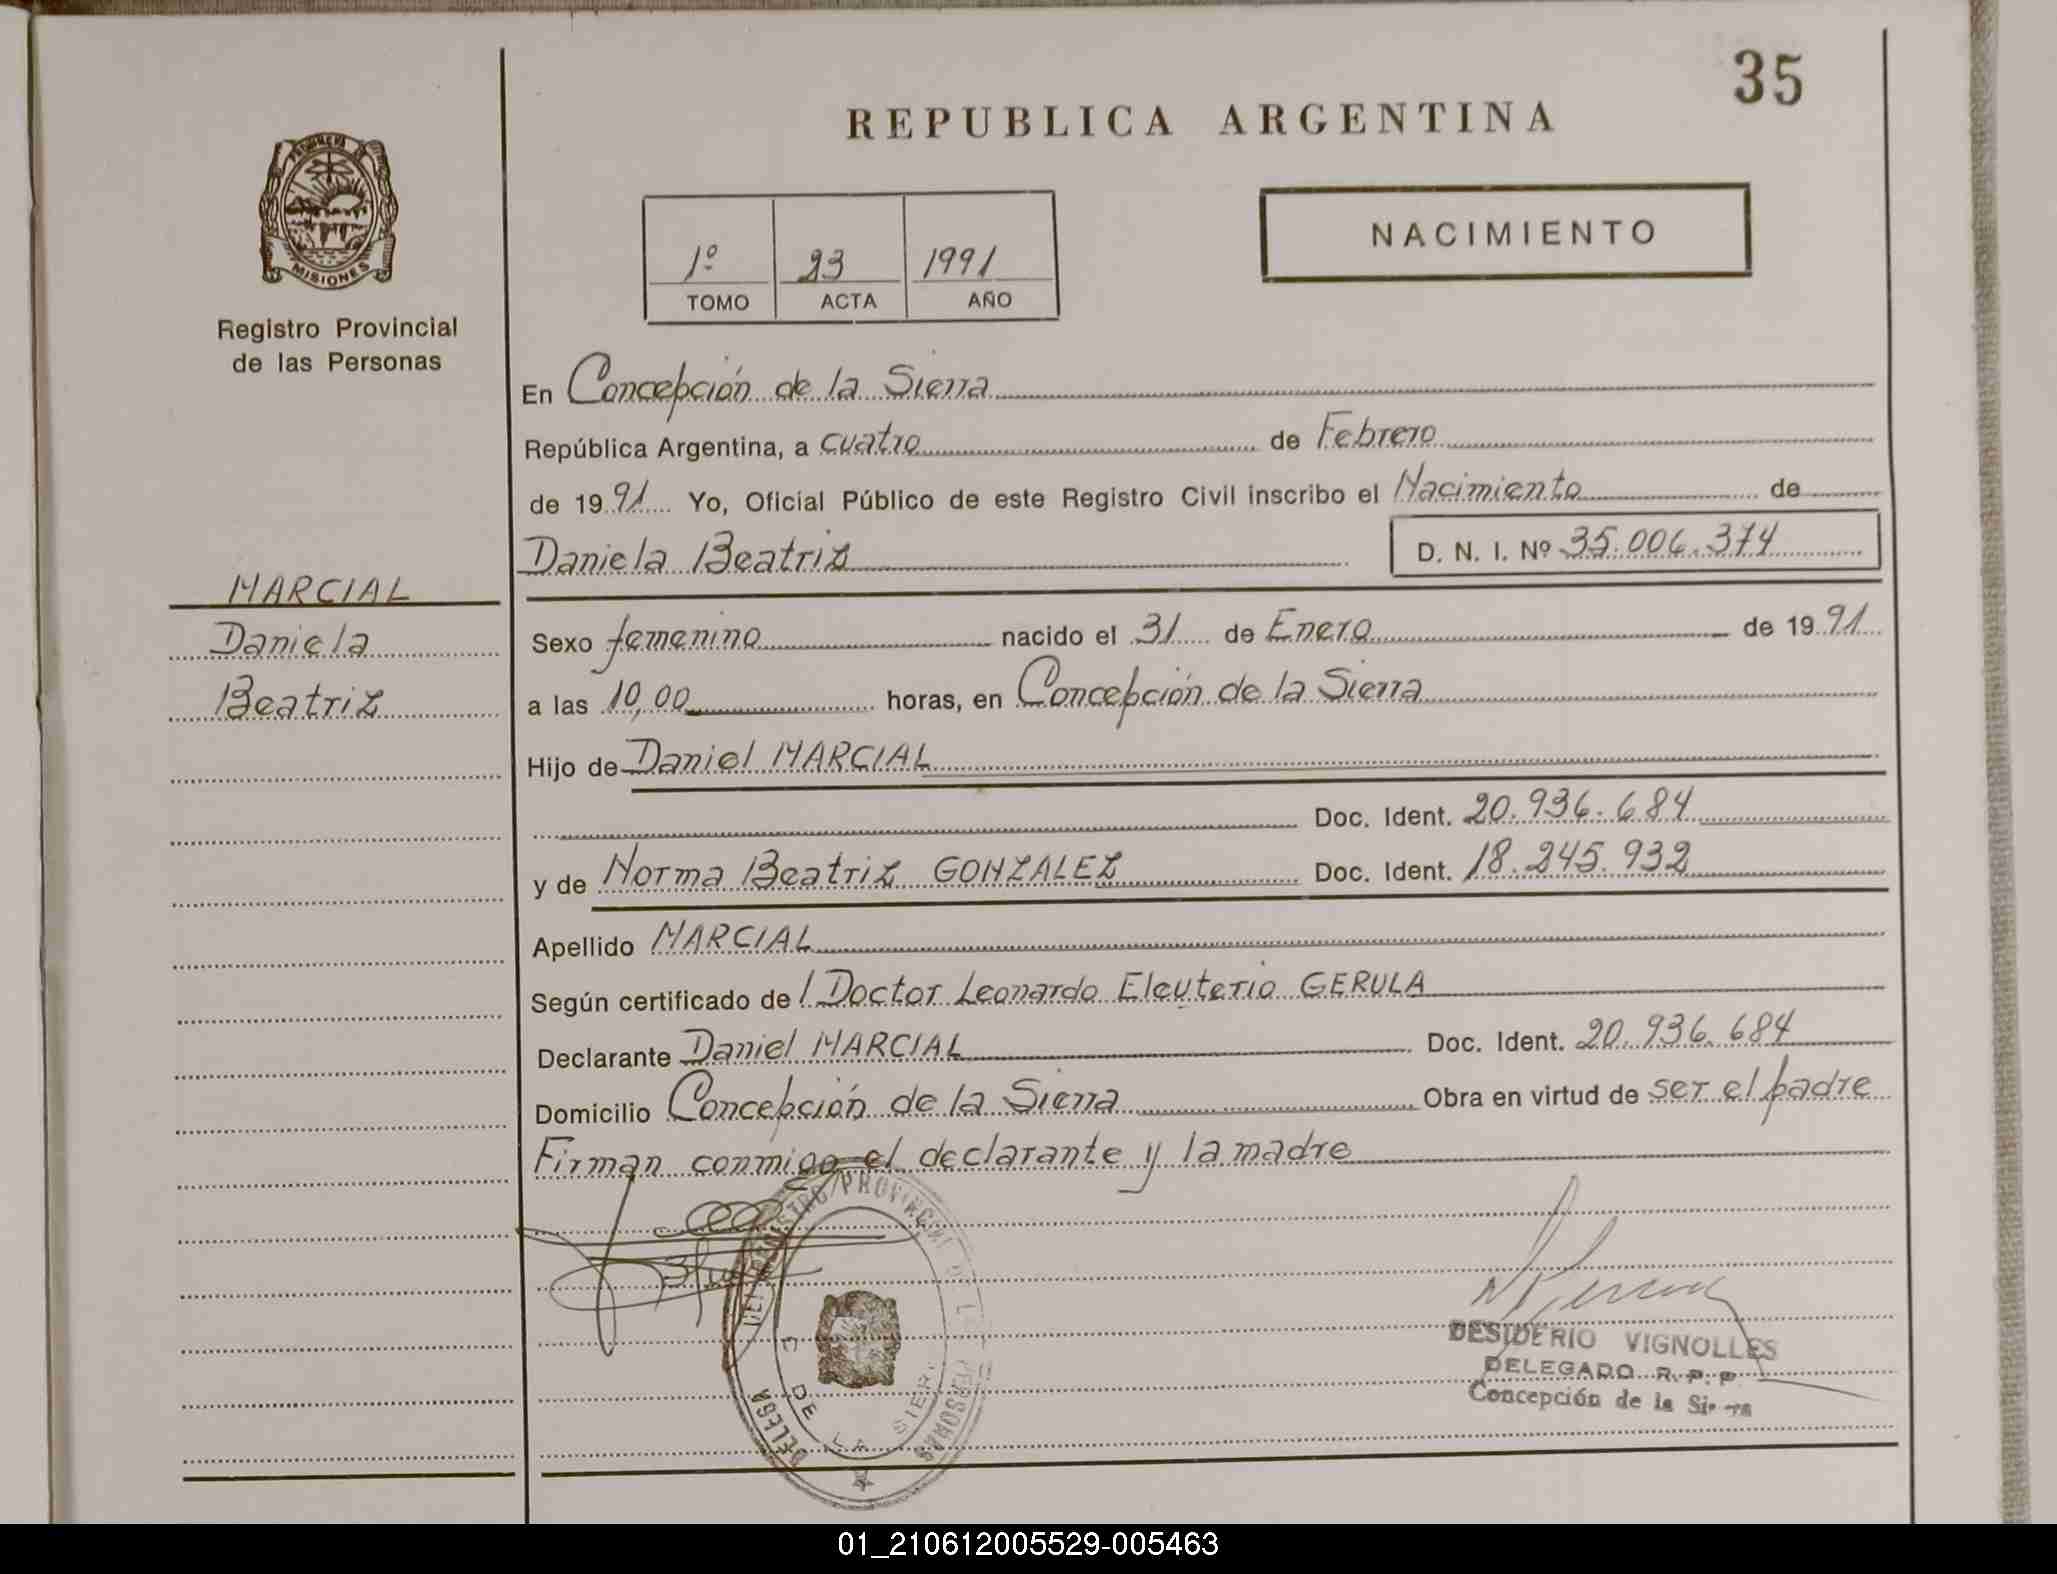 35
REPUBLICA ARGENTINA
PROVINCIA DE
MISIONES
Registro Provincial
de las Personas
1º 23 1991
TOMO ACTA AÑO
NACIMIENTO
En Concepción de la Sierra
República Argentina, a cuatro de Febrero
de 1991 Yo, Oficial Público de este Registro Civil inscribo el Nacimiento de
Daniela Beatriz D. N. I. Nº 35.006.374
MARCIAL
Daniela
Beatriz
Sexo femenino nacido el 31 de Enero de 1991
a las 10,00 horas, en Concepción de la Sierra
Hijo de Daniel MARCIAL
Doc. Ident. 20.936.684
y de Norma Beatriz GONZALEZ Doc. Ident. 18.245.932
Apellido MARCIAL
Según certificado de l Doctor Leonardo Eleuterio GERULA
Declarante Daniel MARCIAL Doc. Ident. 20.936.684
Domicilio Concepción de la Sierra Obra en virtud de ser el padre
Firman conmigo el declarante y la madre
REGISTRO PROVINCIAL DE LAS PERSONAS
DE LA SIERR
DESIDERIO VIGNOLLES
DELEGADO R. P. P.
Concepción de la Sierra
01_210612005529-005463